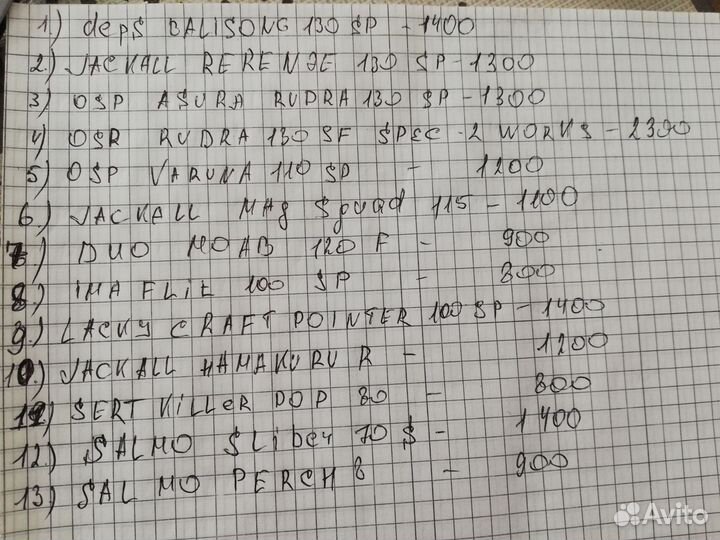 1) deps BALISONG 130 SP - 1400
2) JACKALL RERENGE 130 SP - 1300
3) OSP ASURA RUDRA 130 SP - 1300
4) OSR RUDRA 130 SF SPEC-2 WORKS - 2300
5) OSP VARUNA 110 SP - 1200
6.) JACKALL MAg Squad 115 - 1100
7) DUO MOAB 120 F - 900
8) IMA FLIT 100 SP - 800
9.) LACKY CRAFT POINTER 100 SP - 1400
10.) JACKALL HAMAKURU R - 1200
11) SERT KILLER POP 80 - 800
12) SALMO SLider 70 S - 1400
13) SALMO PERCH 8 - 900
Avito